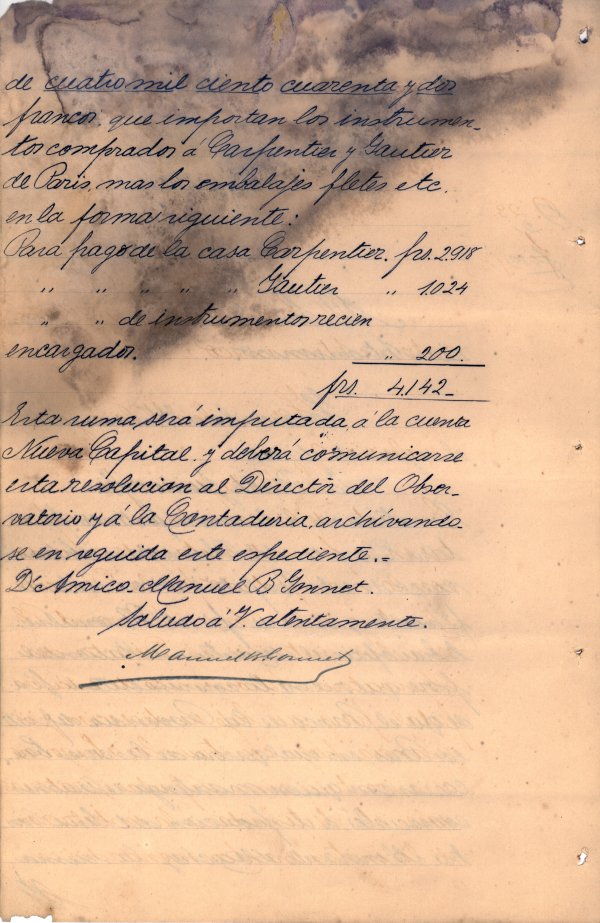 de cuatro mil ciento cuarenta y dos
francos que importan los instrumen-
tos comprados á Carpentier y Gautier
de Paris, mas los embalajes fletes etc.
en la forma siguiente:
Para pago de la casa Carpentier. frs. 2.918
" " " " " Gautier " 1.024
" " de instrumentos recien
encargados. " 200.
frs. 4.142-
Esta suma, será imputada á la cuenta
"Nueva Capital" y deberá comunicarse
esta resolucion al Director del Obser-
vatorio y á la Contaduria, archivando-
se en seguida este espediente.=
D'Amico. Manuel B Gonnet.
Saludo á V atentamente.
Manuel B Gonnet